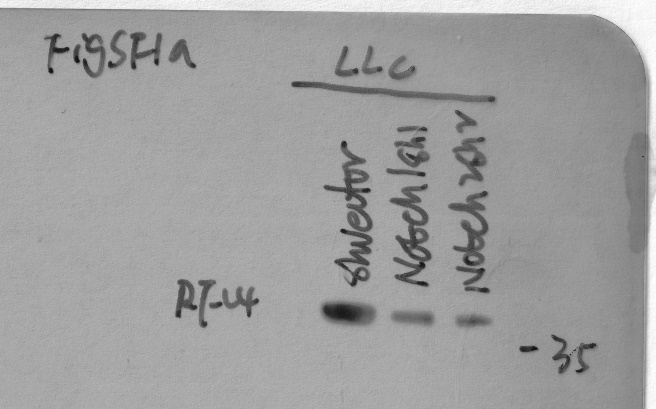 FigSF1a
LLC
shvector
Notch1sh1
Notch2sh2
- 35